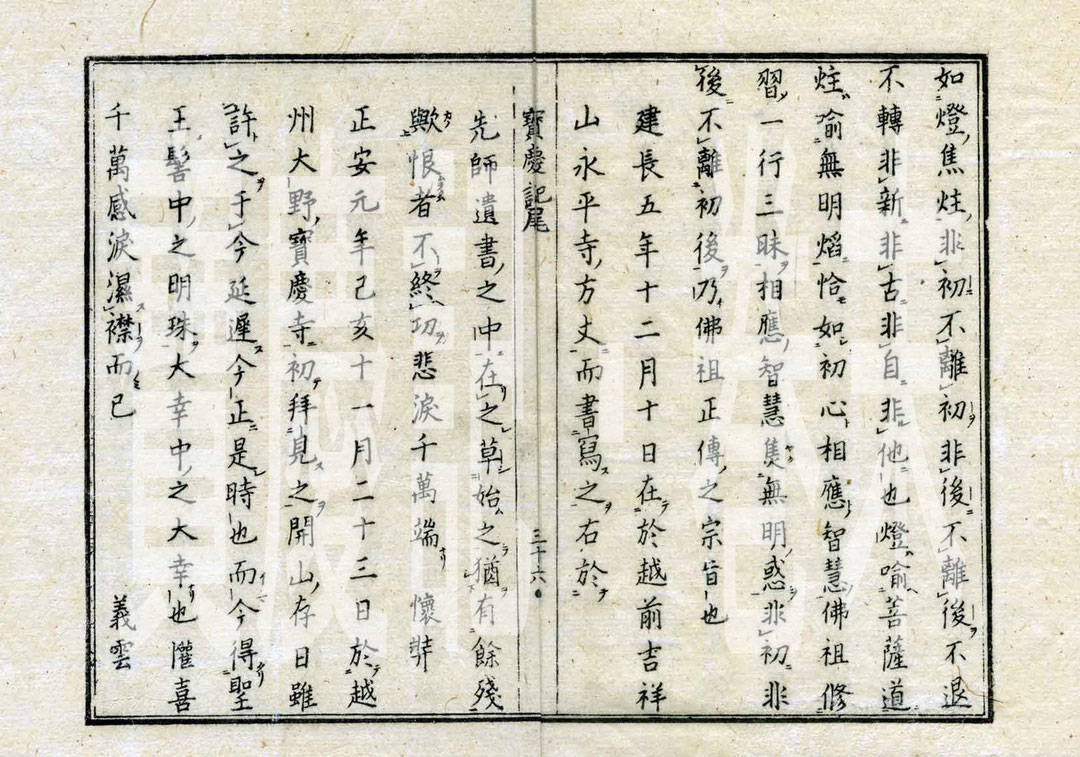 如燈焦炷非初不離初非後不離後不退
不轉非新非古非自非他也燈喻菩薩道
炷喻無明焰恰如初心相應智慧佛祖修
習一行三昧相應智慧焦無明惑非初非
後不離初後乃佛祖正傳之宗旨也
建長五年十二月十日在於越前吉祥
山永平寺方丈而書寫之右於
寶慶記尾
三十六
先師遺書之中在之草始之猶有餘殘
歟恨者不終功悲淚千萬端 懷弉
正安元年己亥十一月二十三日於越
州大野寶慶寺初拜見之開山存日雖
許之于今延遲今正是時也而今得聖
王髻中之明珠大幸中之大幸也懽喜
千萬感淚濕襟而已 義雲